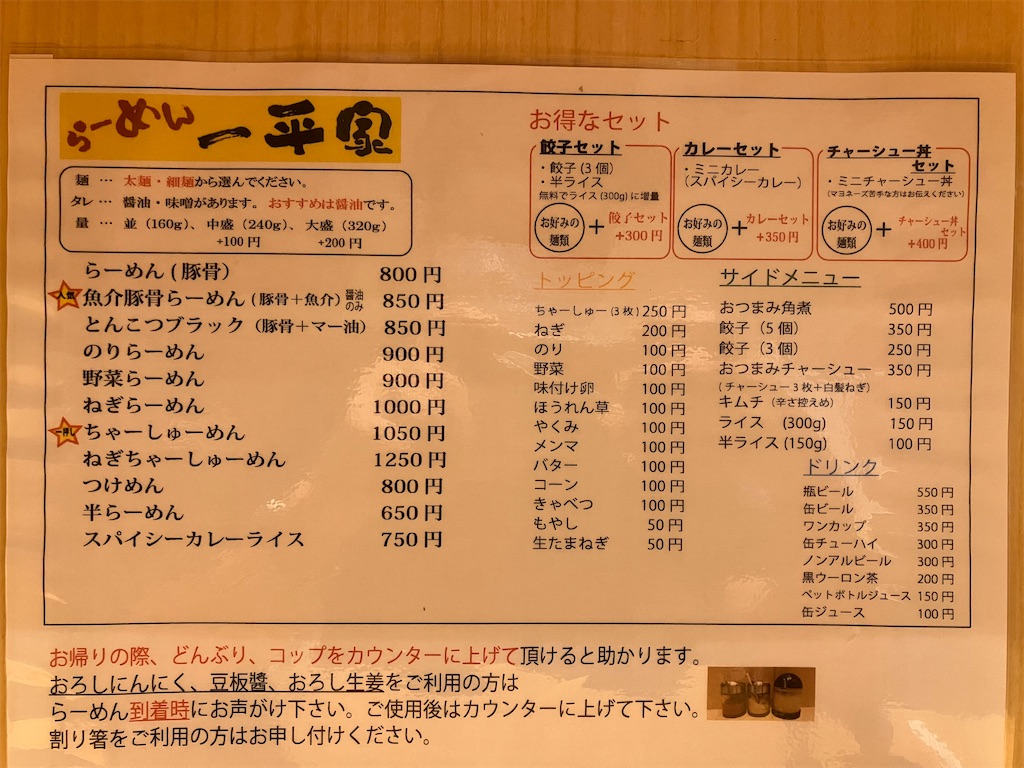 らーめん 一平家
麺 … 太麺・細麺から選んでください。
タレ … 醤油・味噌があります。 おすすめは醤油です。
量 … 並（160g）、中盛（240g）、大盛（320g）
+100 円 +200 円
らーめん ( 豚骨） 800 円
人気 魚介豚骨らーめん ( 豚骨＋魚介）醤油のみ 850 円
とんこつブラック（豚骨＋マー油） 850 円
のりらーめん 900 円
野菜らーめん 900 円
ねぎらーめん 1000 円
一押し ちゃーしゅーめん 1050 円
ねぎちゃーしゅーめん 1250 円
つけめん 800 円
半らーめん 650 円
スパイシーカレーライス 750 円
お得なセット
餃子セット
・餃子 (３個）
・半ライス
無料でライス (300g) に増量
お好みの
麺類
＋
餃子セット
+300 円
カレーセット
・ミニカレー
（スパイシーカレー）
お好みの
麺類
＋
カレーセット
+350 円
チャーシュー丼
セット
・ミニチャーシュー丼
（マヨネーズ苦手な方はお伝えください）
お好みの
麺類
＋
チャーシュー丼
セット
+400 円
トッピング
ちゃーしゅー (３枚 ) 250 円
ねぎ 200 円
のり 100 円
野菜 100 円
味付け卵 100 円
ほうれん草 100 円
やくみ 100 円
メンマ 100 円
バター 100 円
コーン 100 円
きゃべつ 100 円
もやし 50 円
生たまねぎ 50 円
サイドメニュー
おつまみ角煮 500 円
餃子（５個） 350 円
餃子（３個） 250 円
おつまみチャーシュー 350 円
( チャーシュー３枚＋白髪ねぎ）
キムチ（辛さ控えめ） 150 円
ライス (300g) 150 円
半ライス (150g) 100 円
ドリンク
瓶ビール 550 円
缶ビール 350 円
ワンカップ 350 円
缶チューハイ 300 円
ノンアルビール 300 円
黒ウーロン茶 200 円
ペットボトルジュース 150 円
缶ジュース 100 円
お帰りの際、どんぶり、コップをカウンターに上げて頂けると助かります。
おろしにんにく、豆板醬、おろし生姜をご利用の方は
らーめん到着時にお声がけ下さい。ご使用後はカウンターに上げて下さい。
割り箸をご利用の方はお申し付けください。